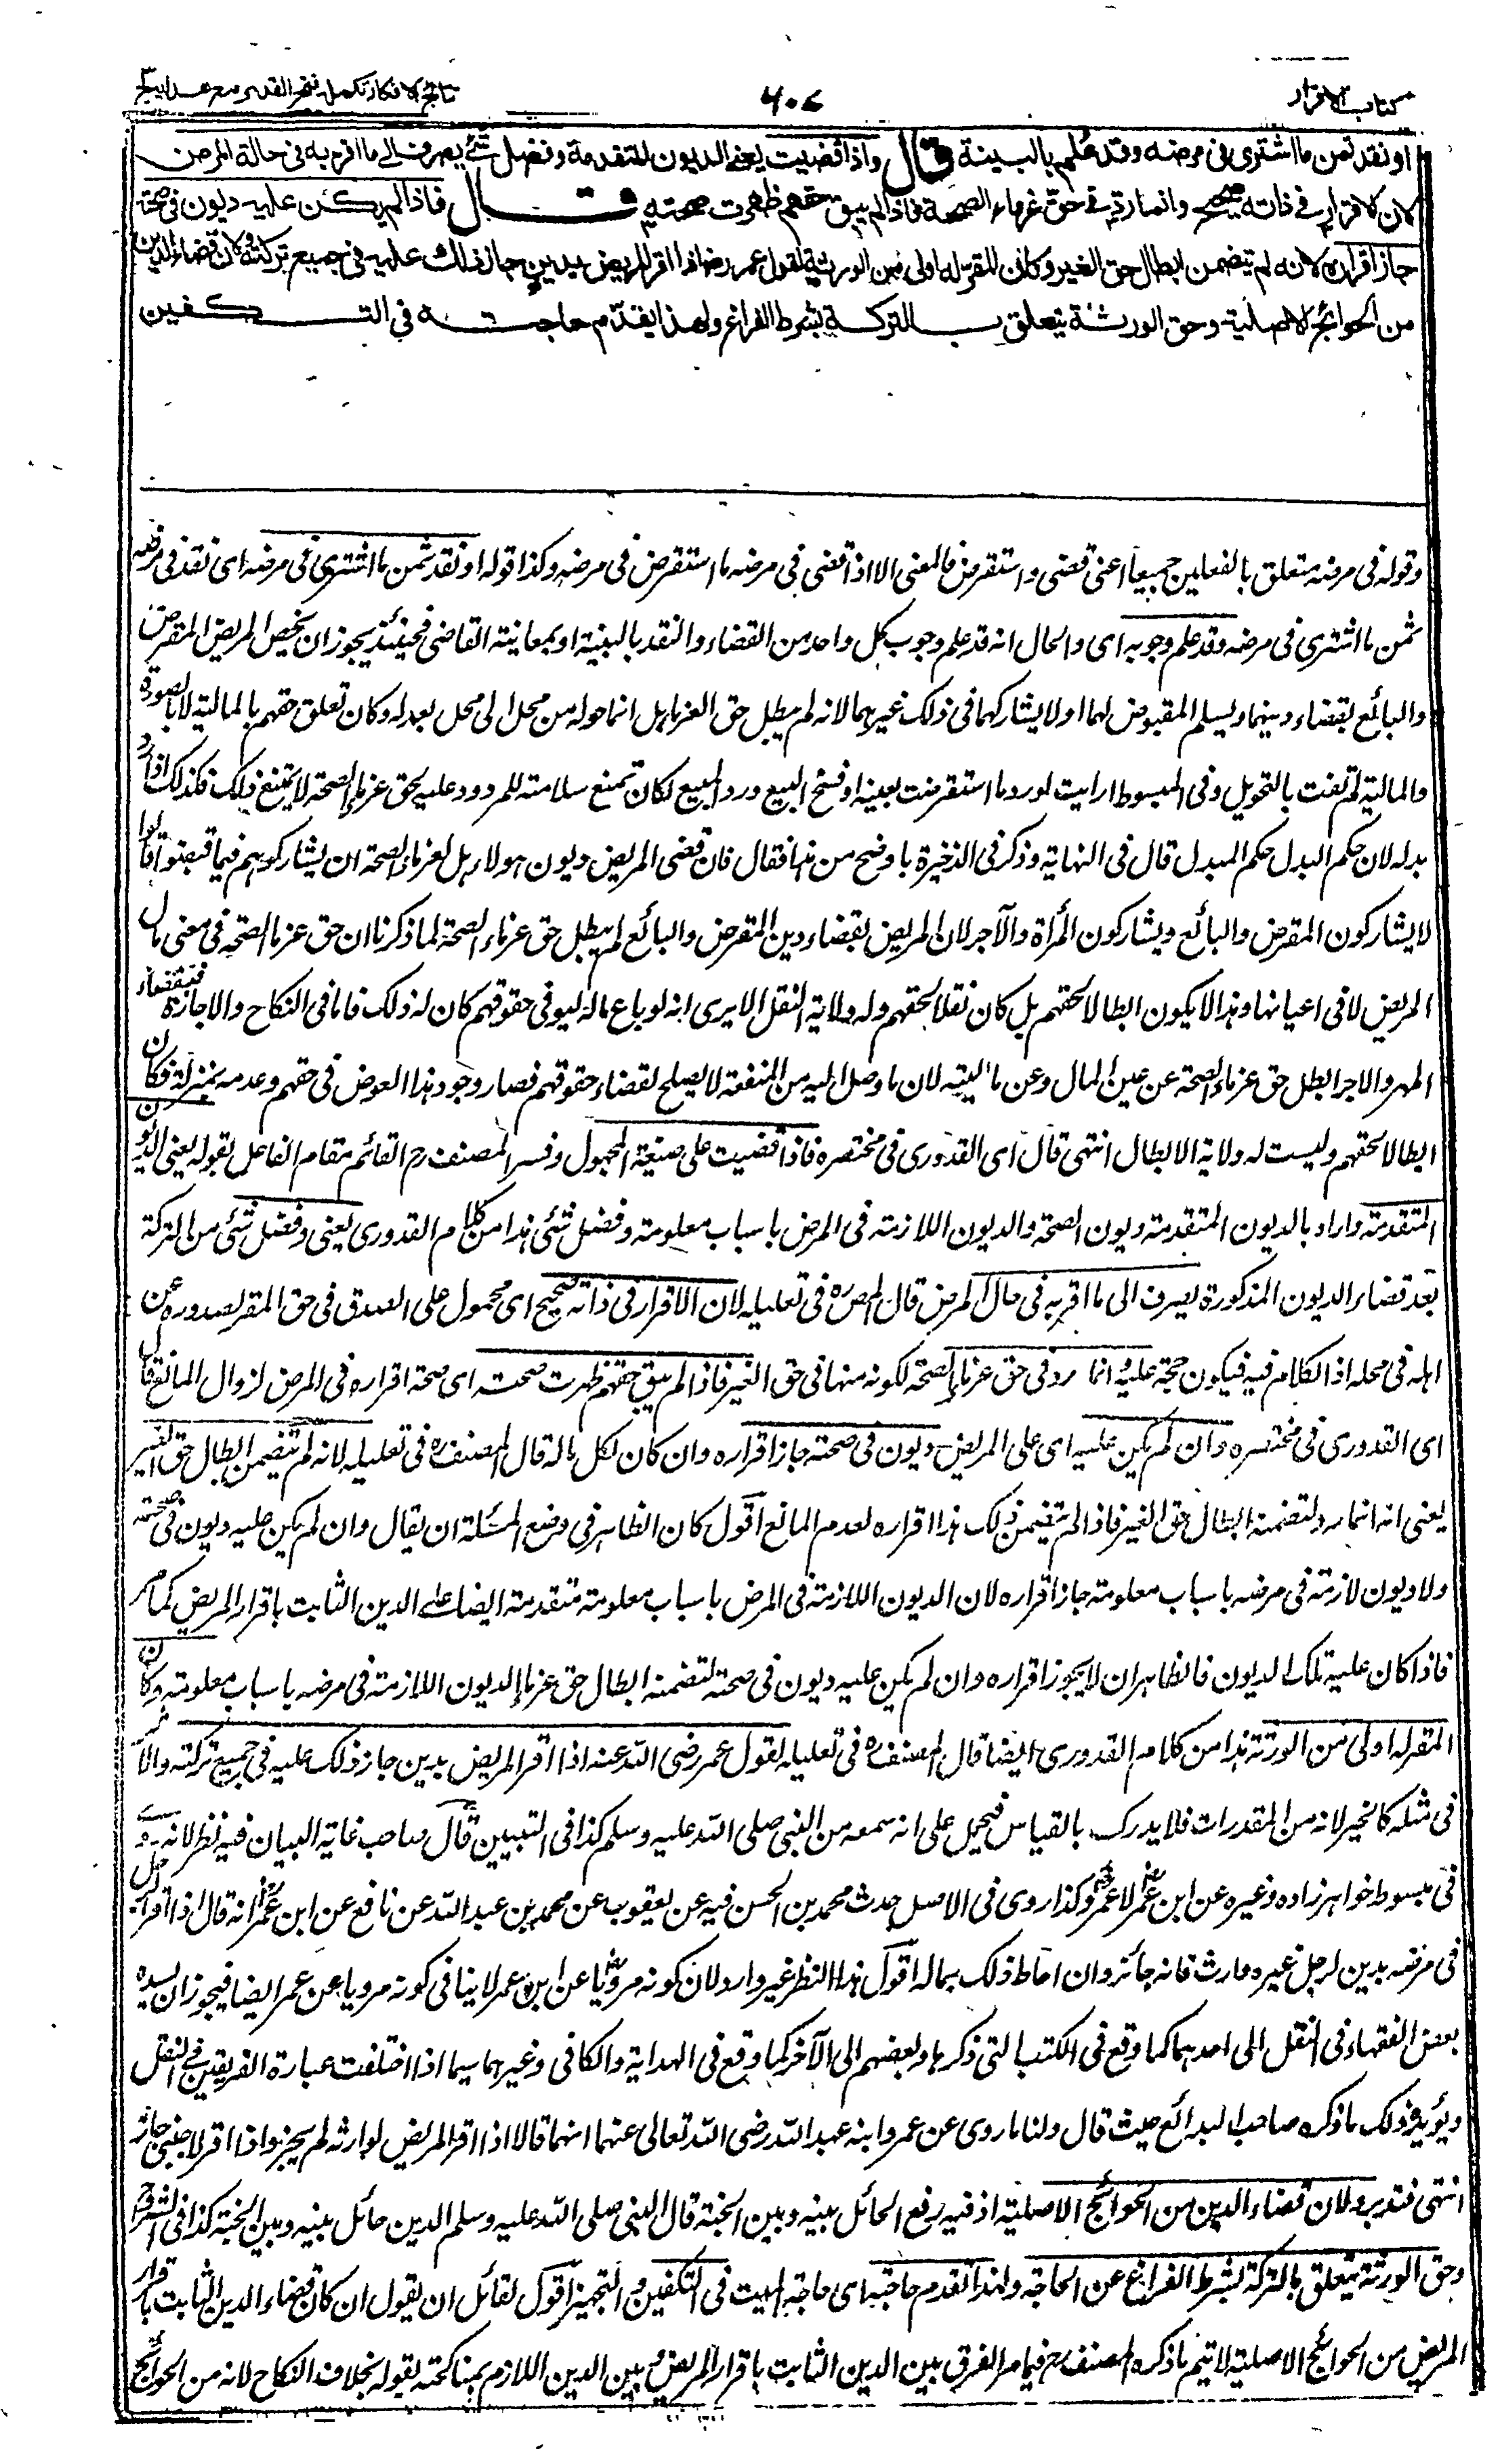 كتاب الاقرار
۶۰۷
نتائج الافكار تكملہ فتح القدير مع ہدايہ ج ۳
او نقد ثمن ما اشترى فى مرضه وقد علم بالبينة قال واذا قضيت يعنى الديون المتقدمة وفضل شئ يصرف الى ما اقر به فى حالة المرض
لان الاقرار فى ذاته صحيح وانما رد فى حق غرماء الصحة فاذا لم يبق حقهم ظهرت صحته قال فاذا لم يكن عليه ديون فى صحته
جاز اقراره لانه لم يتضمن ابطال حق الغير وكان المقر له اولى من الورثة لقول عمر رض اذا اقر المريض بدين جاز ذلك عليه فى جميع تركته ولان قضاء الدين
من الحوائج الاصلية وحق الورثة يتعلق بالتركة بشرط الفراغ ولهذا يقدم حاجته فى التكفين
وقوله فى مرضه متعلق بالفعلين جميعا اعنى قضى واستقرض فالمعنى الا اذا قضى فى مرضه ما استقرض فى مرضه وكذا قوله او نقد ثمن ما اشترى فى مرضه اى نقد فى مرضه
ثمن ما اشترى فى مرضه وقد علم وجوبه اى والحال انه قد علم وجوب كل واحد من القضاء والنقد بالبينة او بمعاينة القاضى فحينئذ يجوز ان يخص المريض المقرض
والبائع بقضاء دينهما ويسلم المقبوض لهما اولا يشاركهما فى ذلك غيرهما لانه لم يبطل حق الغرماء بل انما حوله من محل الى محل يعدله وكان تعلق حقهم بالمالية لا بالصورة
والمالية لم تفت بالتحويل وفى المبسوط ارايت لو رد ما استقرضت بعينه او فسخ البيع ورد المبيع لكان تمنع سلامته للمردود عليه بحق غرماء الصحة لا يمتنع ذلك فكذلك اذا رد
بدله لان حكم البدل حكم المبدل قال فى النهاية وذكر فى الذخيرة باوضح من هذا فقال فان قضى المريض ديون هولاء هل لغرماء الصحة ان يشاركوهم فيما قبضوا قالوا
لا يشاركون المقرض والبائع ويشاركون المرأة والآجر لان المريض بقضاء دين المقرض والبائع لم يبطل حق غرماء الصحة لما ذكرنا ان حق غرماء الصحة فى معنى مال
المريض لا فى اعيانها وهذا لا يكون ابطالا لحقهم بل كان نقلا لحقهم وله ولاية النقل الا يرى انه لو باع ماله ليوفى حقوقهم كان له ذلك فاما فى النكاح والاجارة فبقضاء
المهر والاجر ابطل حق غرماء الصحة عن عين المال وعن ماليته لان ما وصل اليه من المنفعة لا يصلح لقضاء حقوقهم فصار وجود هذا العوض فى حقهم وعدمه بمنزلة فكان
ابطالا لحقهم وليست له ولاية الابطال انتهى قال اى القدورى فى مختصره فاذا قضيت على صيغة المجهول وفسر المصنف رح القائم مقام الفاعل بقوله يعنى الديون
المتقدمة واراد بالديون المتقدمة ديون الصحة والديون اللازمة فى المرض باسباب معلومة وفضل شئ هذا من كلام القدورى يعنى وفضل شئ من التركة
بعد قضاء الديون المذكورة يصرف الى ما اقر به فى حال المرض قال المصره فى تعليله لان الاقرار فى ذاته صحيح اى محمول على الصدق فى حق المقر لصدوره عن
اهله فى محله اذ الكلام فيه فيكون حجة عليه وانما رد فى حق غرماء الصحة لكونه منها فى حق الغير فاذا لم يبق حقهم ظهرت صحته اى صحة اقراره فى المرض لزوال المانع قال
اى القدورى فى مختصره وان لم يكن عليه اى على المريض ديون فى صحته جاز اقراره وان كان لكل ماله قال المصنف ره فى تعليله لانه لم يتضمن ابطال حق الغير
يعنى انه انما رد لتضمنه ابطال حق الغير فاذا لم يتضمن ذلك نفذ اقراره لعدم المانع اقول كان الظاهر فى وضع المسئلة ان يقال وان لم يكن عليه ديون فى صحته
ولا ديون لازمة فى مرضه باسباب معلومة جاز اقراره لان الديون اللازمة فى المرض باسباب معلومة متقدمة ايضا على الدين الثابت باقرار المريض كما مر
فاذا كان عليه تلك الديون فالظاهر ان لا يجوز اقراره وان لم يكن عليه ديون فى صحته لتضمنه ابطال حق غرماء الديون اللازمة فى مرضه باسباب معلومة وكان
المقر له اولى من الورثة هذا من كلام القدورى ايضا قال المصنف ره فى تعليله لقول عمر رضى الله عنه اذا اقر المريض بدين جاز ذلك عليه فى جميع تركته والاثر
فى مثله كالخبر لانه من المقدرات فلا يدرك بالقياس فيحمل على انه سمعه من النبى صلى الله عليه وسلم كذا فى التبيين قال صاحب غاية البيان فيه نظر لانه روى
فى مبسوط خواهر زاده وغيره عن ابن عمر لا عمر وكذا روى فى الاصل حدث محمد بن الحسن فيه عن يعقوب عن محمد بن عبد الله عن نافع عن ابن عمر انه قال اذا اقر الرجل
فى مرضه بدين لرجل غير وارث فانه جائز وان احاط ذلك بماله اقول هذا النظر غير وارد لان كونه مرويا عن ابن عمر لا ينافى كونه مرويا عن عمر ايضا فيجوز ان يسنده
بعض الفقهاء فى النقل الى احدهما كما وقع فى الكتب التى ذكرها وبعضهم الى الآخر كما وقع فى الهداية والكافى وغيرهما سيما اذا اختلفت عبارة الفريقين فى النقل
ويؤيد ذلك ما ذكره صاحب البدائع حيث قال ولنا ما روى عن عمر وابنه عبد الله رضى الله تعالى عنهما انهما قالا اذا اقر المريض لوارثه لم يجز واذا اقر لاجنبى جاز
انتهى فتدبر ولان قضاء الدين من الحوائج الاصلية اذ فيه رفع الحائل بينه وبين الجنة قال النبى صلى الله عليه وسلم الدين حائل بينه وبين الجنة كذا فى الشروح
وحق الورثة يتعلق بالتركة بشرط الفراغ عن الحاجة ولهذا تقدم حاجته اى حاجة الميت فى التكفين والتجهيز اقول لقائل ان يقول ان كان قضاء الدين الثابت باقرار
المريض من الحوائج الاصلية لا يتم ما ذكره المصنف رح فيما مر الفرق بين الدين الثابت باقرار المريض وبين الدين اللازم بمناكحته بقوله بخلاف النكاح لانه من الحوائج